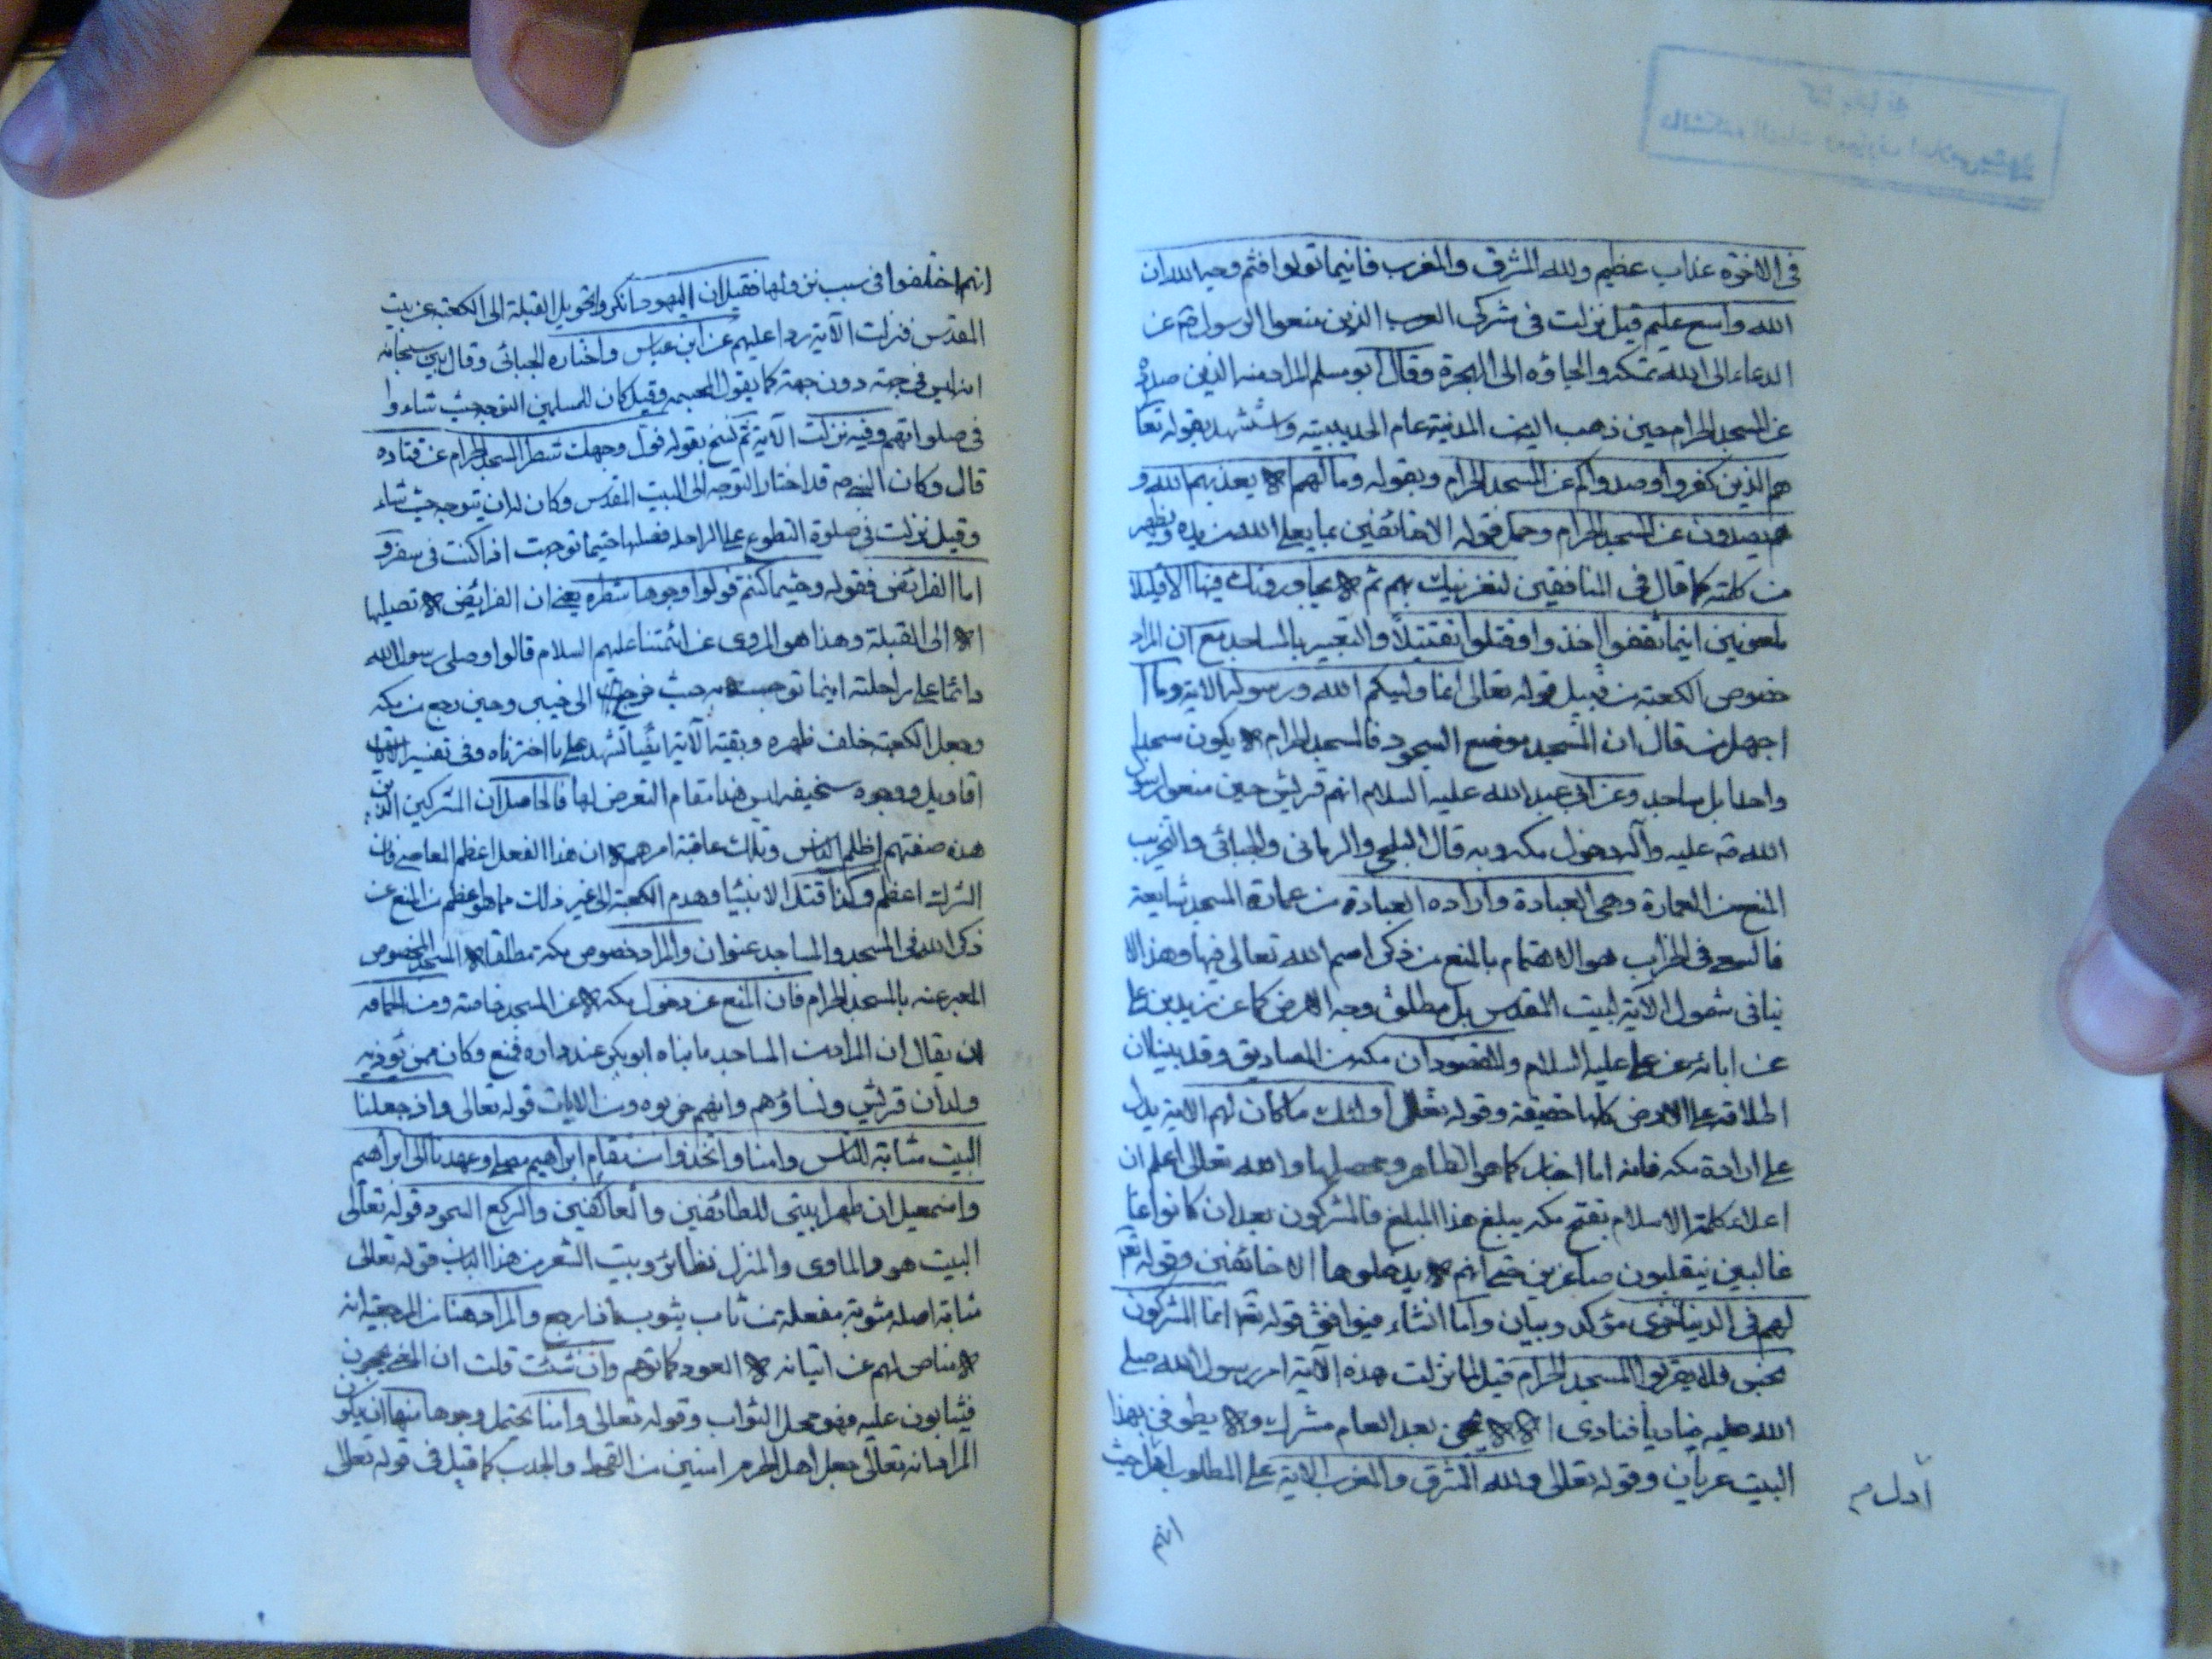 في الاخرة عذاب عظيم ولله المشرق والمغرب فاينما تولوا فثم وجه الله ان
الله واسع عليم قيل نزلت في مشركي العرب الذين منعوا الرسول صم عن
الدعاء الى الله بمكة والجاؤه الى الهجرة وقال ابو مسلم المراد منه الذين صدوه
عن المسجد الحرام حين ذهب اليه من المدينة عام الحديبية واستشهد بقوله تعا
هم الذين كفروا وصدوكم عن المسجد الحرام وبقوله وما لهم الا يعذبهم الله و
هم يصدون عن المسجد الحرام وحمل قوله الا خائفين بما يعلي الله من يده ويظهر
من كلمته كما قال في المنافقين لنغرينك بهم ثم لا يجاورونك فيها الا قليلا
ملعونين اينما ثقفوا اخذوا وقتلوا تقتيلا والتعبير بالمساجد مع ان المراد
خصوص الكعبة من قبيل قوله تعالى انما وليكم الله ورسوله الاية وما
اجهل من قال ان المسجد موضع السجود فالمسجد الحرام لا يكون مسجدا
واحدا بل مساجد وعن ابي عبد الله عليه السلام انهم قريش حين منعوا رسول
الله صم عليه وآله دخول مكة وبه قال البلخي والرماني والجبائي والتخريب
المنع من العمارة وهي العبادة وارادة العبادة من عمارة المسجد شايعة
فالسعي في الخراب هو الاهتمام بالمنع من ذكر اسم الله تعالى فيها وهذا لا
ينافي شمول الآية لبيت المقدس بل مطلق وجه الارض كما عن زيد بن علي
عن ابائه عن علي عليه السلام والمقصود ان مكة من المصاديق وقد بينا ان
اطلاقه على الارض كلها حقيقة وقوله تعالى اولئك ما كان لهم الاية يدل
على ارادة مكة فانه اما اخبار كما هو الظاهر ومحصلها والله تعالى اعلم ان
اعلاء كلمة الاسلام بفتح مكة يبلغ هذا المبلغ فالمشركون بعد ان كانوا
غالبين ينقلبون صاغرين حتى انهم لا يدخلوها الا خائفين وقوله تعم
لهم في الدنيا خزي مؤكد وبيان واما انشاء فيوافق قوله تعم انما المشركون
نجس فلا يقربوا المسجد الحرام قيل لما نزلت هذه الآية امر رسول الله صلى
الله عليه مناديا فنادى الا لا يحجن بعد العام مشرك ولا يطوفن بهذا
البيت عريان وقوله تعالى ولله المشرق والمغرب الاية على المطلوب حيث
ادل م
انهم
انهم اختلفوا في سبب نزولها فقيل ان اليهود انكروا تحويل القبلة الى الكعبة عن بيت
المقدس فنزلت الآية ردا عليهم عن ابن عباس واختاره الجبائي وقال بين سبحانه
انه ليس في جهة دون جهة كما يقول المجسمة وقيل كان للمسلمين التوجه حيث شاءوا
في صلواتهم وفيه نزلت الآية ثم نسخ بقوله فول وجهك شطر المسجد الحرام عن قتاده
قال وكان النبي صم قد اختار التوجه الى البيت المقدس وكان له ان يتوجه حيث شاء
وقيل نزلت في صلوة التطوع على الراحلة فصلها حيثما توجهت اذا كنت في سفر و
اما الفرائض فقوله وحيثما كنتم فولوا وجوهكم شطره يعني ان الفرايض لا تصليها
الا الى القبلة وهذا هو المروي عن ائمتنا عليهم السلام قالوا وصلى رسول الله
على راحلته اينما توجهت به حيث خرج الى خيبر وحين رجع من مكة
وجعل الكعبة خلف ظهره وبقية الآية ايضا تشهد على ما اخترناه وفي تفسير
اقاويل ووجوه سخيفة ليس هذا مقام التعرض لها فالحاصل ان المشركين الذين
هذه صفتهم اظلم الناس وتلك عاقبة امرهم لا ان هذا الفعل اعظم المعاصي فان
الشرك اعظم وكذا قتل الانبياء وهدم الكعبة الى غير ذلك مما هو اعظم من المنع عن
ذكر الله في المسجد والمساجد عنوان والمراد خصوص مكة مطلقا لا المسجد المخصوص
المعبر عنه بالمسجد الحرام فان المنع عن دخول مكة لا عن المسجد خاصة ومن الحماقة
ان يقال ان المراد من المساجد ما بناه ابوبكر عند داره فمنع وكان ممن يؤذيه
ولدان قريش ونساؤهم وانهم خربوه ومن الايات قوله تعالى واذ جعلنا
البيت مثابة للناس وامنا واتخذوا من مقام ابراهيم مصلى وعهدنا الى ابراهيم
واسمعيل ان طهرا بيتي للطائفين والعاكفين والركع السجود قوله تعالى
البيت هو والماوى والمنزل نظائر وبيت الشعر من هذا الباب قوله تعالى
مثابة اصله مثوبة مفعلة من ثاب يثوب اذا رجع والمراد هنا من المرجعية انه
لا مناص لهم عن اتيانه لا العود كما توهم وان شئت قلت ان
فيثابون عليه فهو محل الثواب وقوله تعالى وامنا يحتمل وجوها منها ان يكون
المراد انه تعالى جعل اهل الحرم امنين من القحط والجدب كما قيل في قوله تعالى